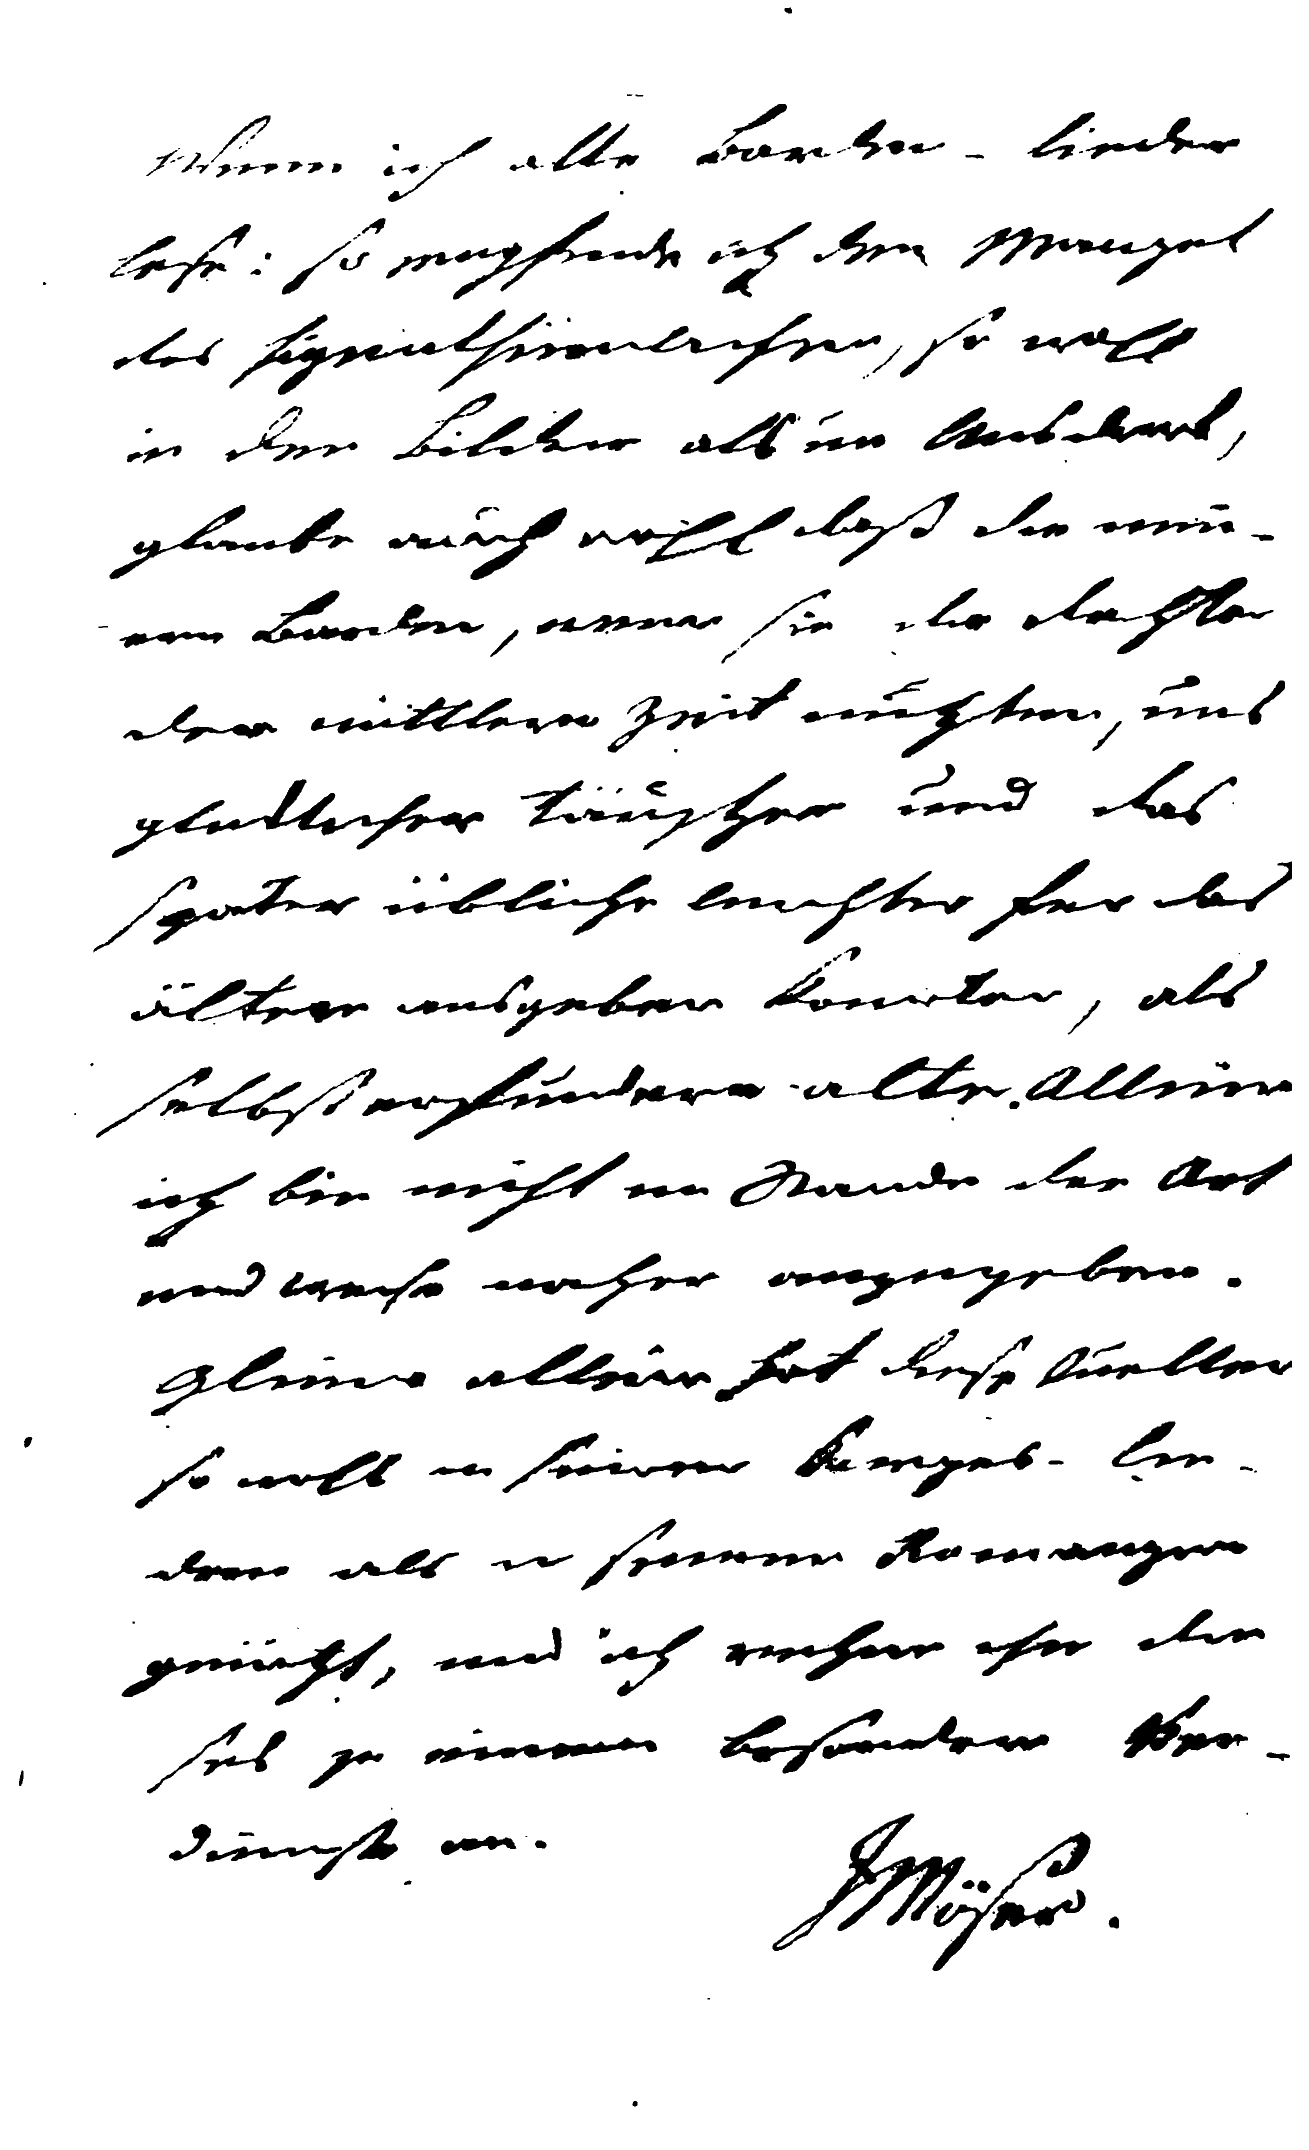 Wenn ich alte Barden-lieder
lese: so empfinde ich den Mangel
des Eigenthümlichen, so wohl
in den Bildern als im Ausdruck,
glaube auch wohl daß die neu-
ern Barden, wenn sie die dichter
der mittlern Zeit nutzten, uns
glücklicher täuschen und das
später übliche leichter für das
ältere ausgeben könten, als
selbst erfundene alte. Allein
ich bin nicht im Stande die Art
und weise naher anzugeben.
Gleim allein hat diese Quellen
so wohl in seinen Krieges-lie-
dern als in seinen Romanzen
genutzt, und ich rechne ihm die
ses zu einem besondern Ver-
dienste an.
JMöser.